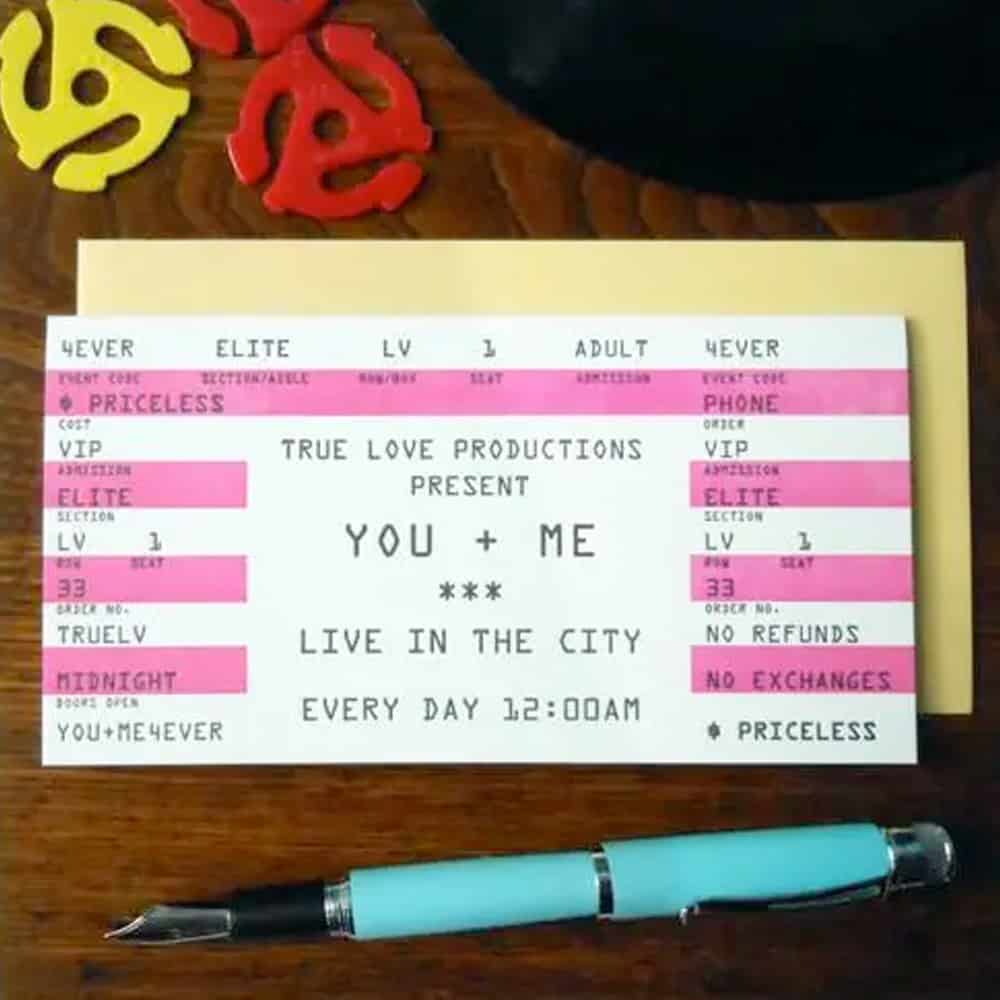 4EVER ELITE LV 1 ADULT 4EVER
EVENT CODE SECTION/AISLE ROW/BOX SEAT ADMISSION EVENT CODE
PRICELESS PHONE
COST ORDER
VIP TRUE LOVE PRODUCTIONS VIP
ADMISSION ADMISSION
PRESENT
ELITE ELITE
SECTION SECTION
LV 1 YOU + ME LV 1
ROW SEAT ROW SEAT
33 *** 33
ORDER NO. ORDER NO.
TRUELV LIVE IN THE CITY NO REFUNDS
MIDNIGHT NO EXCHANGES
DOORS OPEN
EVERY DAY 12:00AM
YOU+ME4EVER PRICELESS